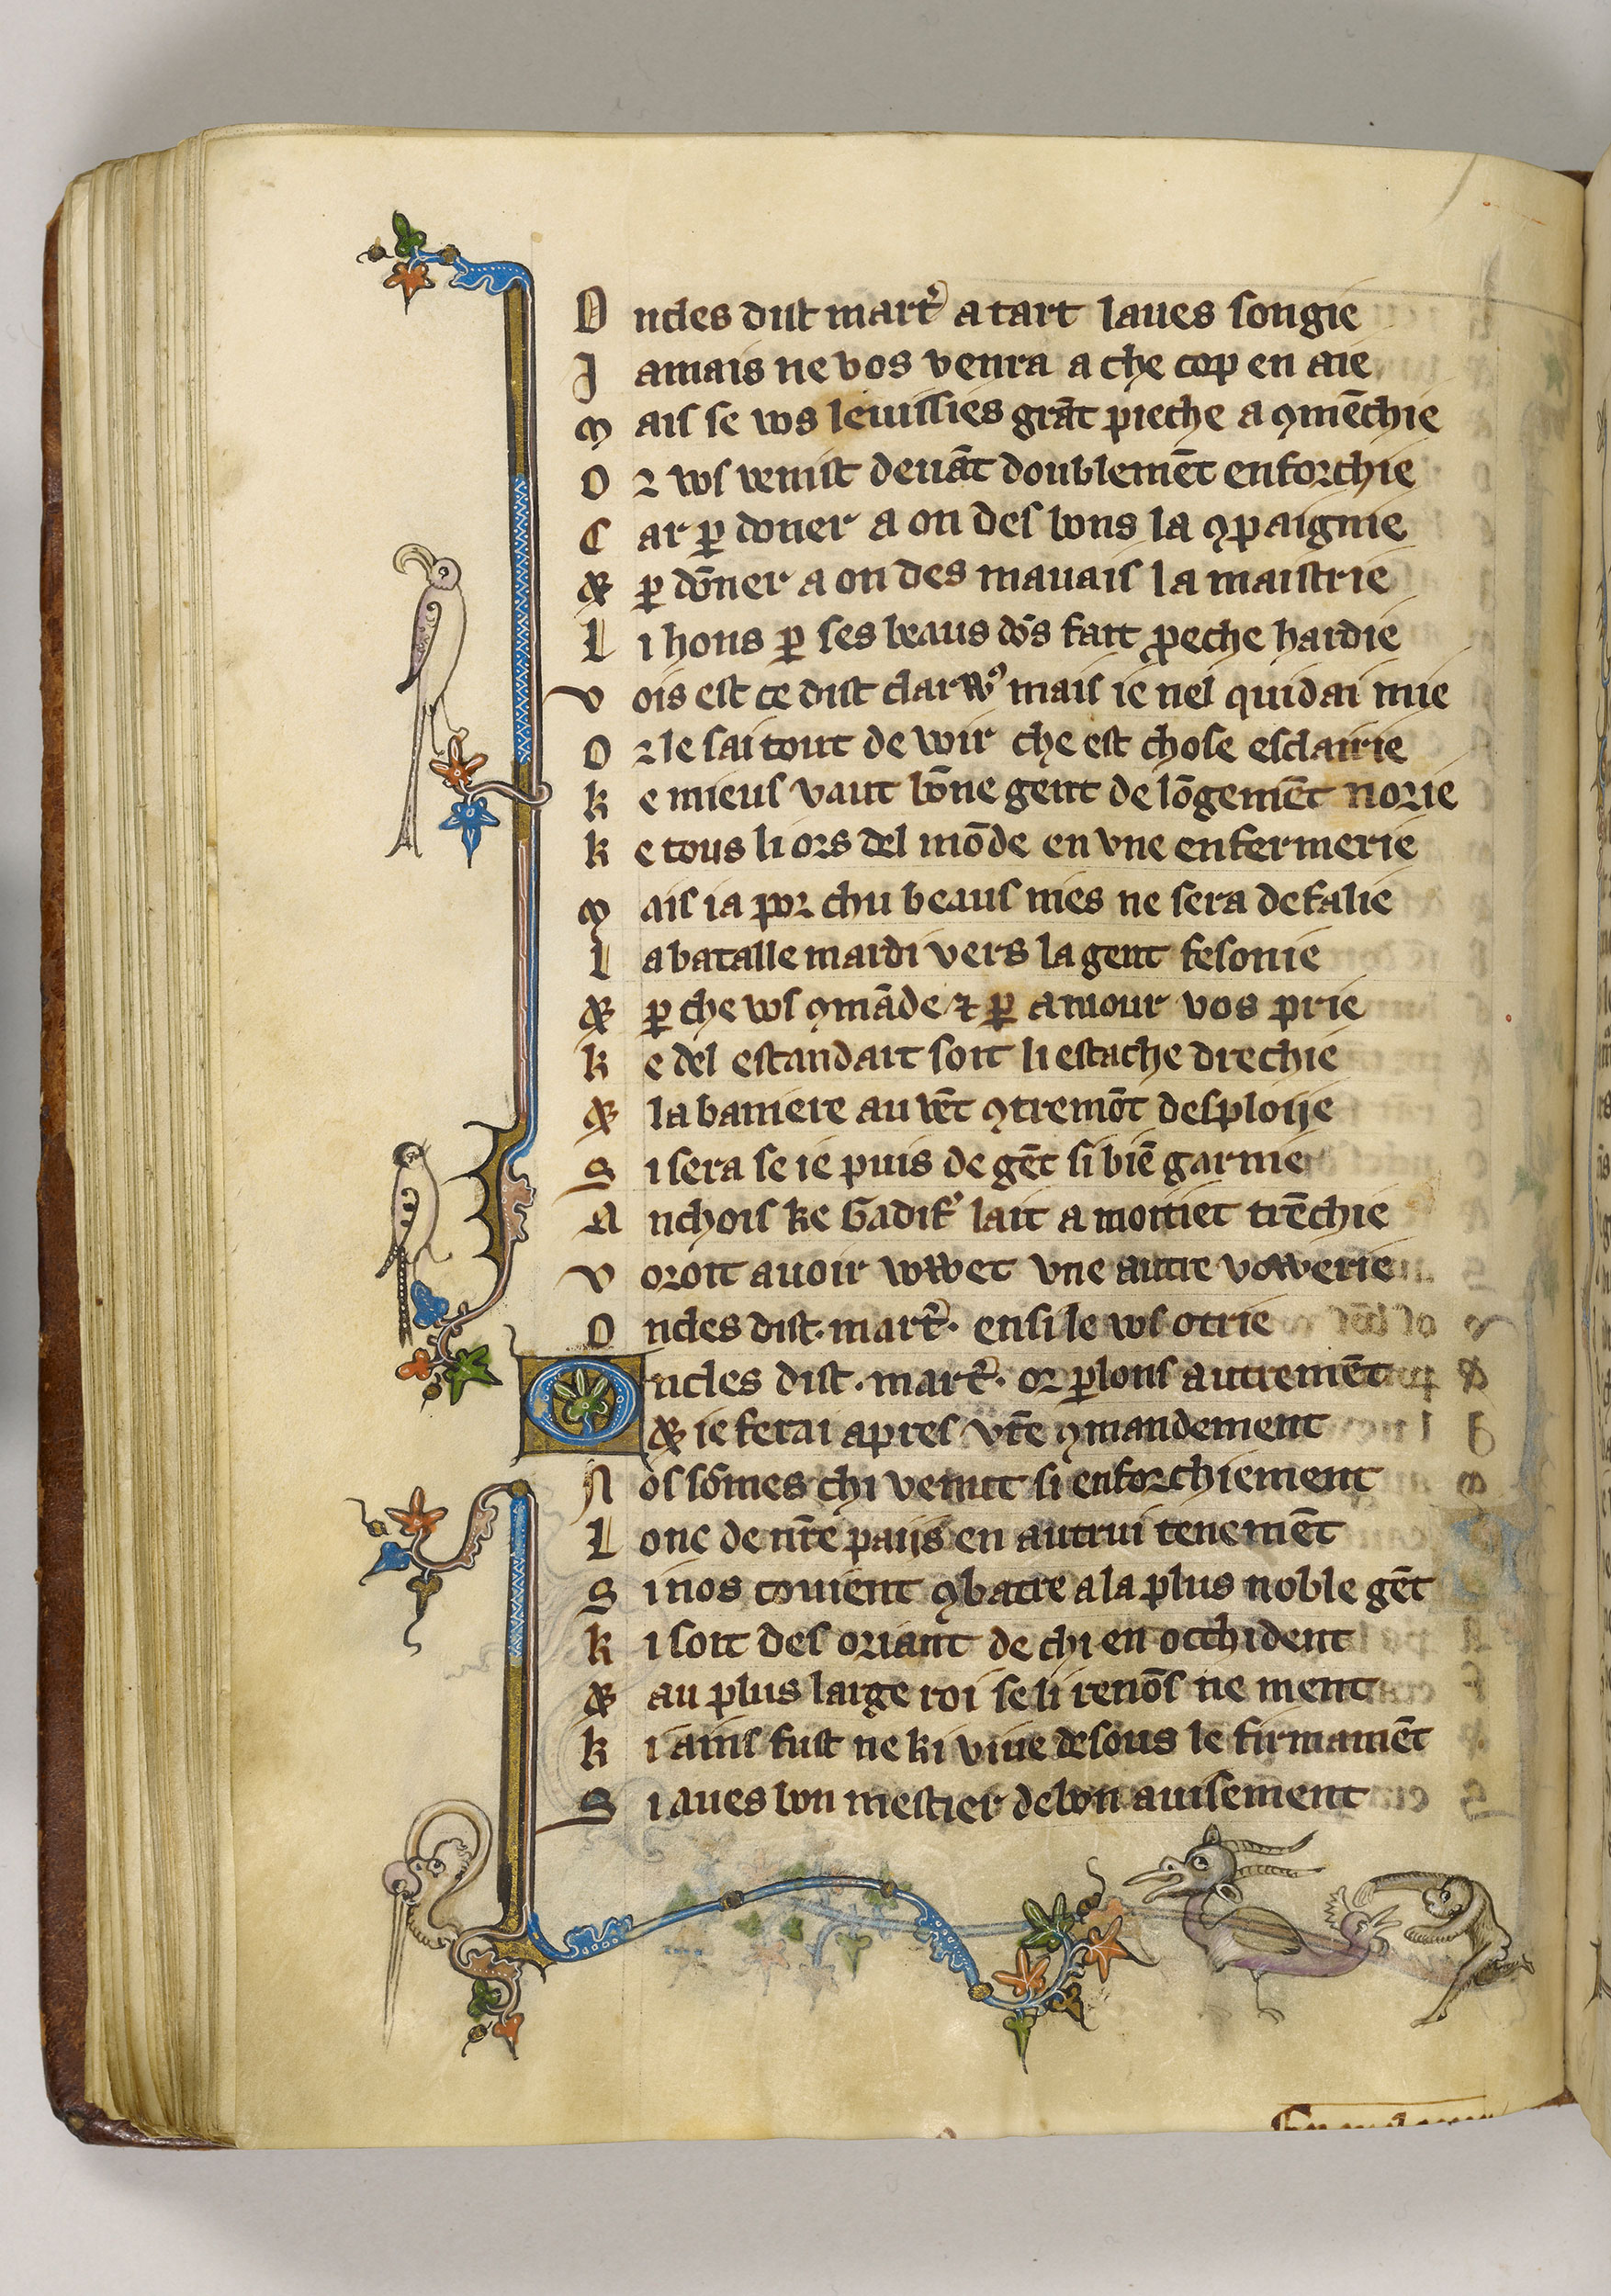 O ncles dist mart̉ a tart laues songie
J amais ne vos venra a che cop en aie
M ais se vos leuissies grāt pieche a ꝯmēchie
O ꝛ vos venist deuāt doublemēt enforchie
C ar ꝑ doner a on des bons la ꝯpaignie
⁊ ꝑ dōner a on des mauais la maistrie
L i hons ꝑ ses beaus dōs fait ꝓeche hardie
V ois est ce dist clarwꝰ mais ie nel quidai mie
O ꝛ le sai tout de voir che est chose esclairie
K e mieus vaut bōne gent de lōgemēt norie
K e tous li ors del mōde en vne enfermerie
M ais ia por chu beaus nies ne sera defalie
L a batalle mardi vers la gent fesonie
⁊ ꝑ che vos ꝯmāde ⁊ ꝑ amour vos prie
K e del estandart soit li estache drechie
⁊ la baniere au vēt ꝯtremōt desploije
S i sera se ie puis de gēt si biē garnie
A nchois ke Gadif̉ lait a moitiet trēchie
V oroit auoir wwet vne autre vowerie
O ncles dist · mart̉ · ensi le vos otrie
O ncles dist · mart̉ · or ꝑlons autremēt
⁊ ie ferai apres vr̄e ꝯmandement
N os sōmes chi venut si enforchiement
L onc de nr̄e paijs en autrui tenemēt
S i nos couient ꝯbatre a la plus noble gēt
K i soit des oriant de chi en occhident
⁊ au plus large roi se li renōs ne ment
K i ains fust ne ki viue desous le firmamēt
S i aues bon mestier de bon auisement